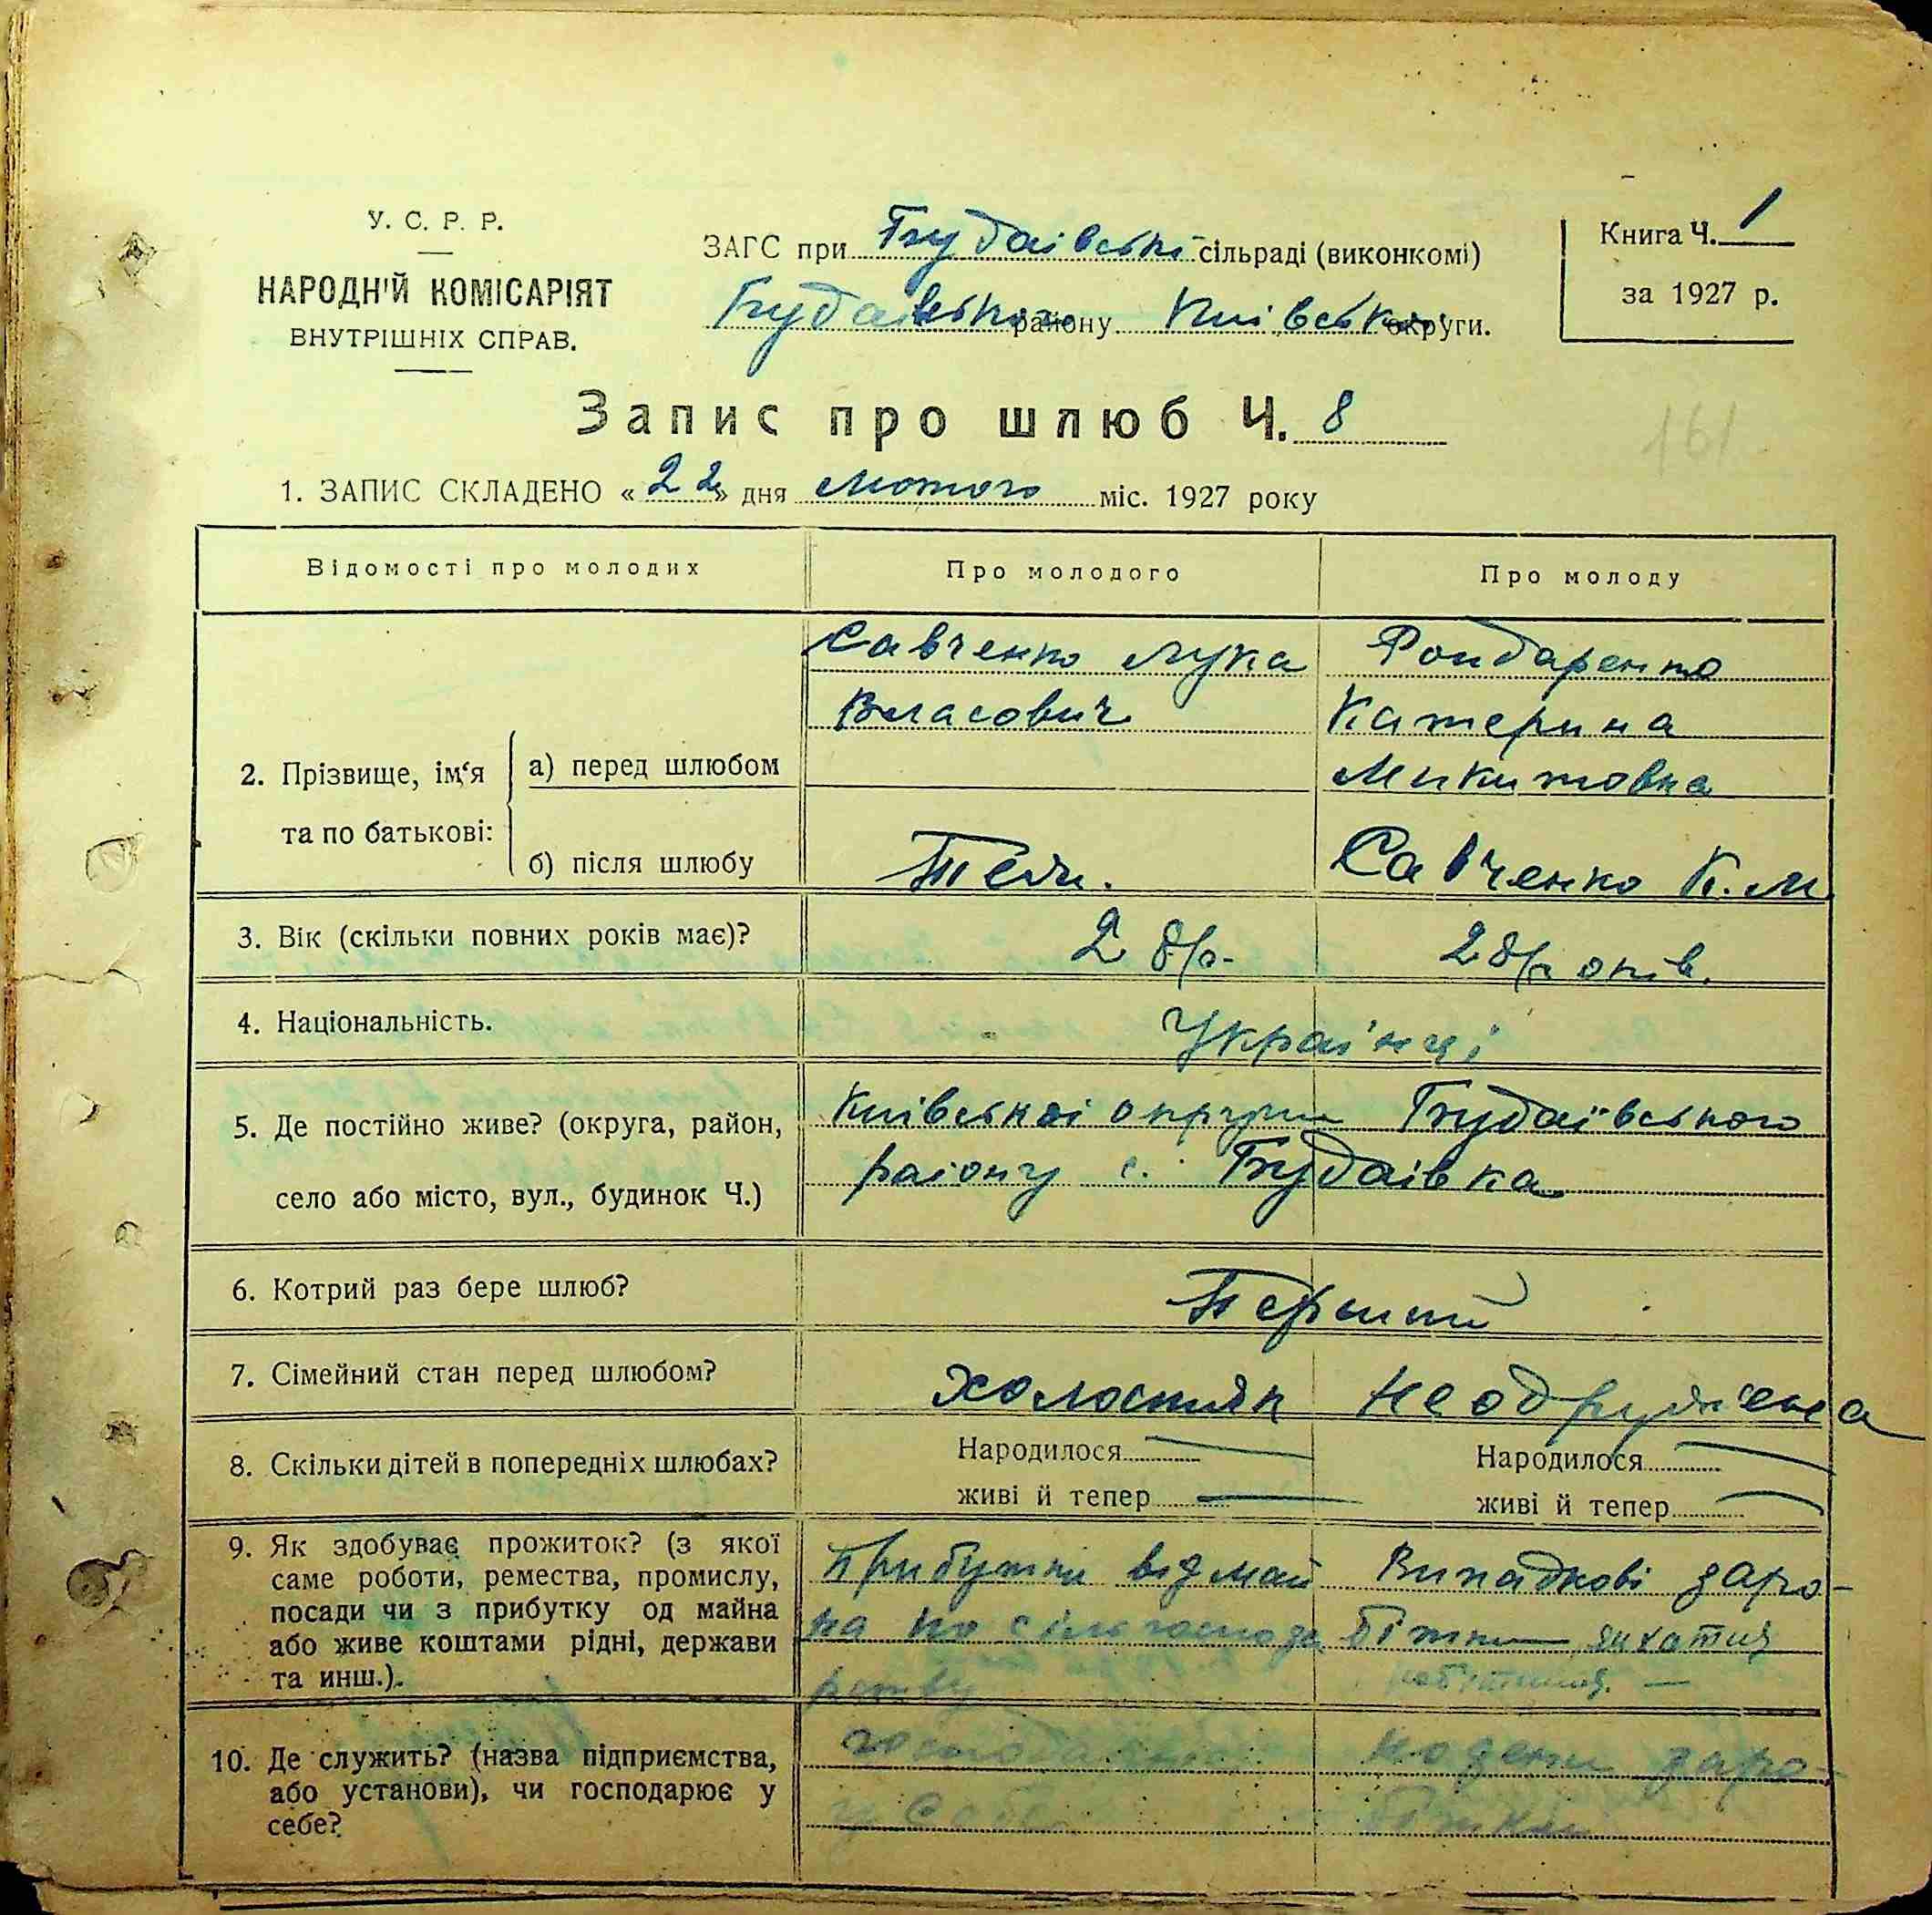 У. С. Р. Р.
НАРОДНІЙ КОМІСАРІЯТ
ВНУТРІШНІХ СПРАВ.
ЗАГС при Будаівські сільраді (виконкомі)
Будаівського району Київської округи.
Книга Ч. 1
за 1927 р.
Запис про шлюб Ч. 8
161
1. ЗАПИС СКЛАДЕНО « 22 » дня лютого міс. 1927 року
Відомості про молодих
Про молодого
Про молоду
2. Прізвище, ім'я та по батькові:
а) перед шлюбом
Савченко Лука
Власович
Бондаренко
Катерина
Микитовна
б) після шлюбу
Теж.
Савченко К. М.
3. Вік (скільки повних років має)?
28/р.
28/років.
4. Національність.
Українці
5. Де постійно живе? (округа, район,
село або місто, вул., будинок Ч.)
Київської округи Будаївського
району с. Будаівка
6. Котрий раз бере шлюб?
Перший
7. Сімейний стан перед шлюбом?
холостяк
неодружена
8. Скільки дітей в попередніх шлюбах?
Народилося
живі й тепер
Народилося
живі й тепер
9. Як здобуває прожиток? (з якої
саме роботи, ремества, промислу,
посади чи з прибутку од майна
або живе коштами рідні, держави
та инш.).
Прибутки від май
на по сільгоспода
рству
Випадкові заро-
бітки
10. Де служить? (назва підприємства,
або установи), чи господарює у
себе?
у себе
поденн. заро-
бітки